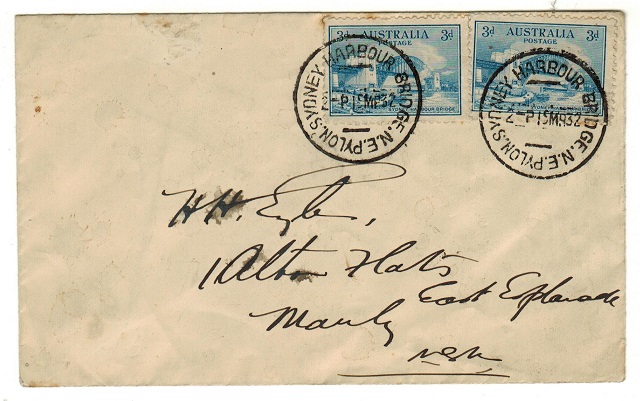 3d AUSTRALIA 3d
POSTAGE
SYDNEY HARBOUR BRIDGE
3d AUSTRALIA 3d
POSTAGE
SYDNEY HARBOUR BRIDGE. N.E. PYLON.
2-P 19MR32
SYDNEY HARBOUR BRIDGE. N.E. PYLON.
2-P 19MR32
H.H.
1 Alton Flats
East Esplanade
Manly
NSW